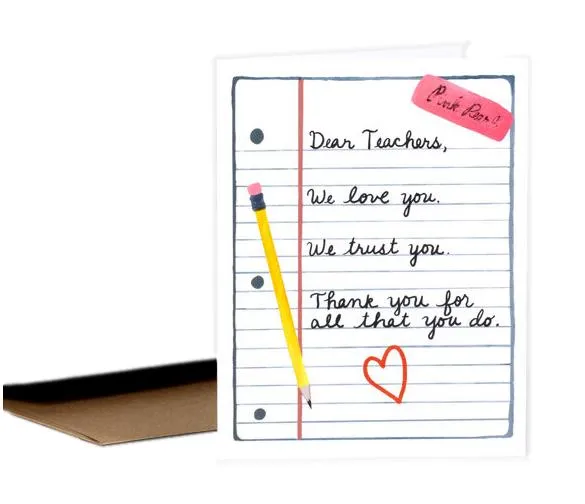 Pink Pearl
Dear Teachers,
We love you.
We trust you.
Thank you for
all that you do.